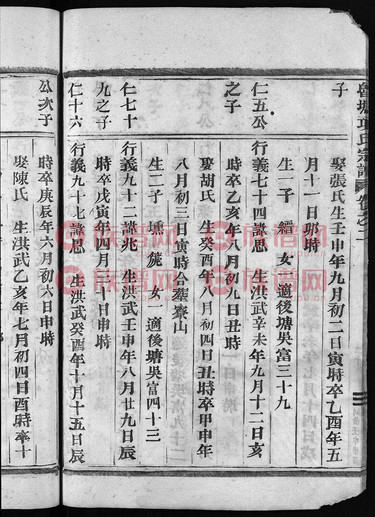 子
娶張氏生壬申年九月初二日寅時卒乙酉年五
月十一日卯時
生一子 縉 女一適後塘吳富三十九
仁五公 行義七十四諱思 生洪武辛未年九月十二日亥
之子
時卒乙亥年八月初九日丑時
娶胡氏 生癸酉年八月初四日丑時卒甲申年
八月初三日寅時合塟寮山
生二子 女一適後塘吳富四十三
仁七十 行義九十二諱兆 生洪武壬申年八月廿九日辰
九之子
時卒戊寅年四月三十日申時
仁十六 行義九十七諱思 生洪武癸酉年十月十五日辰
公次子
時卒庚辰年六月初六日申時
娶陳氏 生洪武乙亥年七月初四日酉時卒十
族譜网